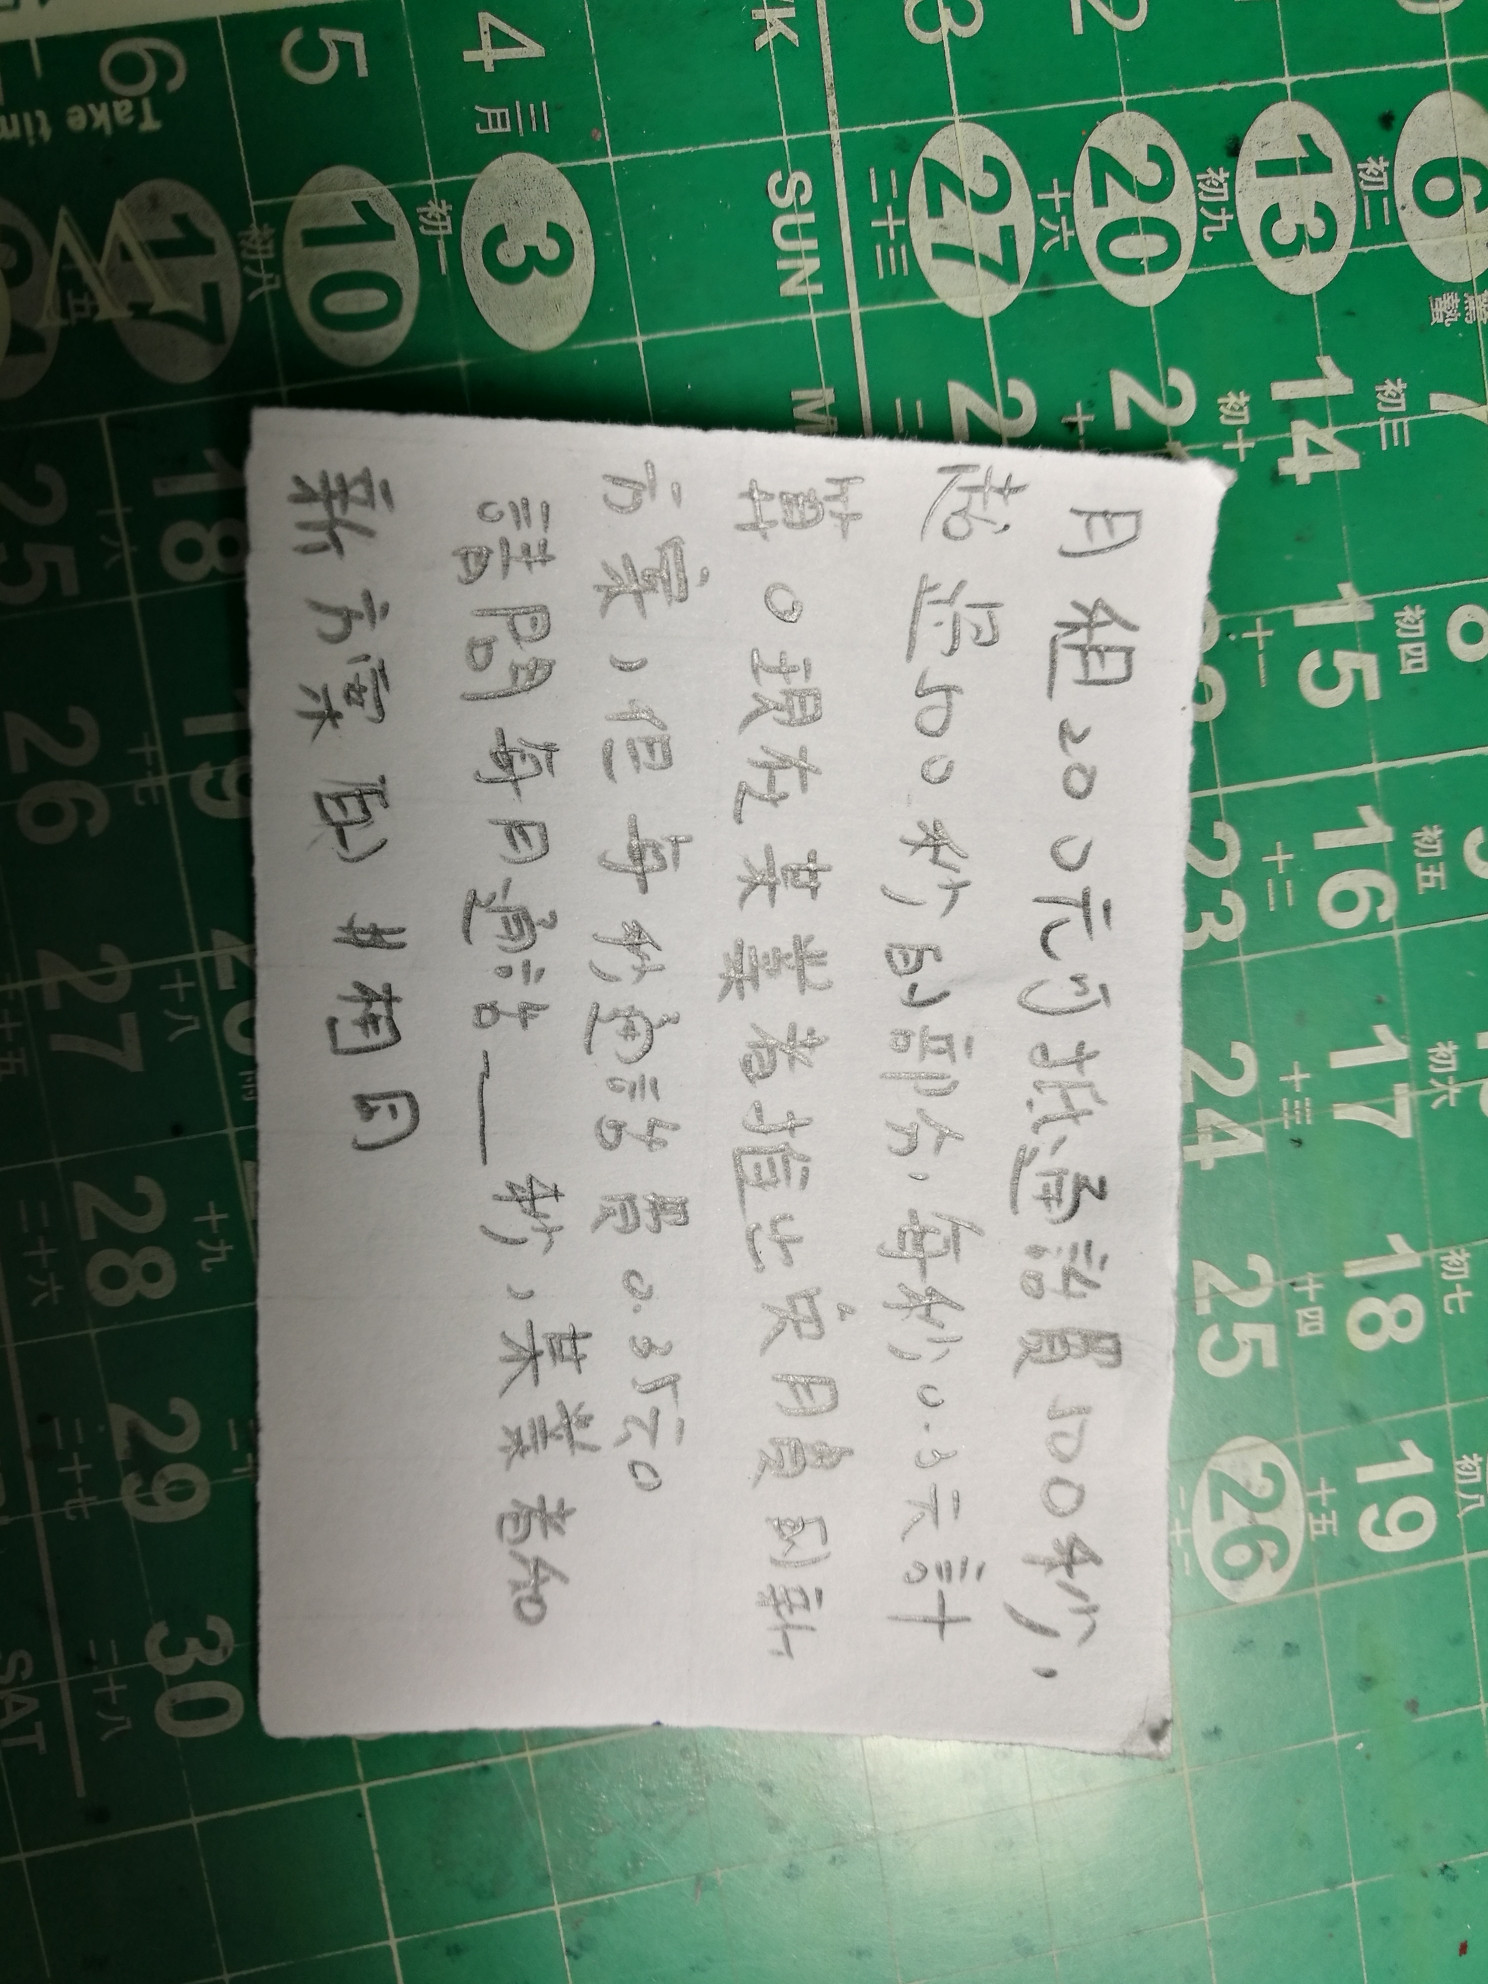 月組200元可抵通話費500秒,
超過500秒的部分,每秒0.3元計
算。現在某業者推出實月費的新
方案,但每秒通話費0.35元。
請問每月通話___秒,某業者和
新方案的#相同
4 三月
5
6
Take tim
3
初一
10
初八
17
十五
SUN
27
二十三
20
十六
13
初九
6
初二
驚蟄
14
初三
初十
15
初四
十一
16
初五
23
十二
17
初六
24
十三
18
初七
25
十四
19
初八
26
十五
18
十六
25
19
十七
26
20
十八
27
28
十九
二十六
29
二十七
30
二十八
SAT